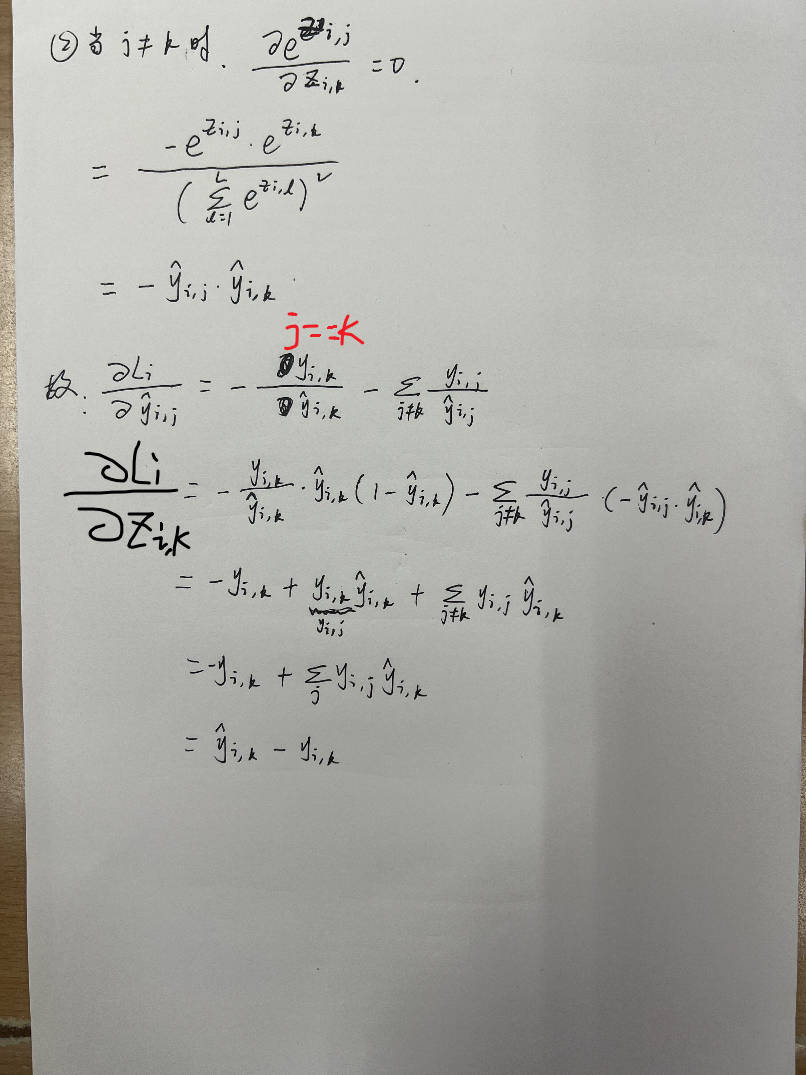 ② 当 j≠k 时. ∂e^{z_{i,j}} / ∂z_{i,k} = 0.
= -e^{z_{i,j}} · e^{z_{i,k}} / (∑_{l=1}^{L} e^{z_{i,l}})^2
= - ŷ_{i,j} · ŷ_{i,k}
j==k
故: ∂L_i / ∂ŷ_{i,j} = - y_{i,k} / ŷ_{i,k} - ∑_{j≠k} y_{i,j} / ŷ_{i,j}
∂L_i / ∂z_{i,k} = - y_{i,k} / ŷ_{i,k} · ŷ_{i,k} (1 - ŷ_{i,k}) - ∑_{j≠k} y_{i,j} / ŷ_{i,j} · (-ŷ_{i,j} · ŷ_{i,k})
= -y_{i,k} + y_{i,k} ŷ_{i,k} + ∑_{j≠k} y_{i,j} ŷ_{i,k}
y_{i,j}
= -y_{i,k} + ∑_{j} y_{i,j} ŷ_{i,k}
= ŷ_{i,k} - y_{i,k}